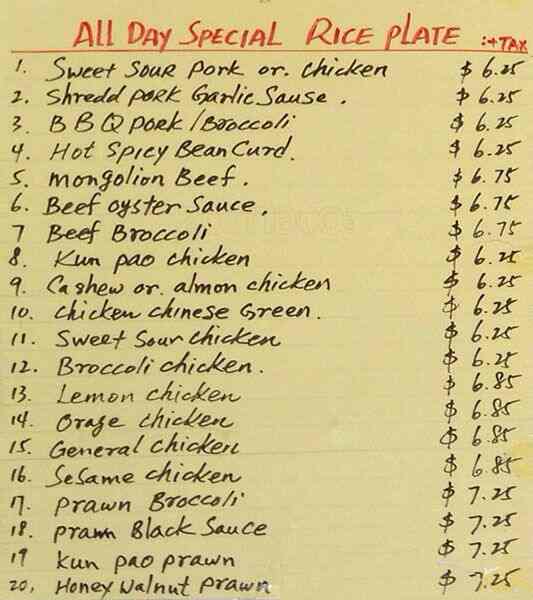 ALL DAY SPECIAL RICE PLATE :+TAX
1. Sweet Sour Pork or. chicken $6.25
2. Shredd PORK Garlic Sause. $6.25
3. BBQ Pork/Broccoli $6.25
4. Hot Spicy Bean Curd. $6.25
5. mongolion Beef. $6.75
6. Beef oyster Sauce. $6.75
7 Beef Broccoli $6.75
8. Kun pao chicken $6.25
9. Cashew or. almon chicken $6.25
10. chicken chinese Green. $6.25
11. Sweet Sour chicken $6.25
12. Broccoli chicken. $6.25
13. Lemon chicken $6.85
14. Oraze chicken $6.85
15. General chicken $6.85
16. Sesame chicken $6.85
17. prawn Broccoli $7.25
18. prawn Black Sauce $7.25
19 kun pao prawn $7.25
20. Honey Walnut prawn $7.25